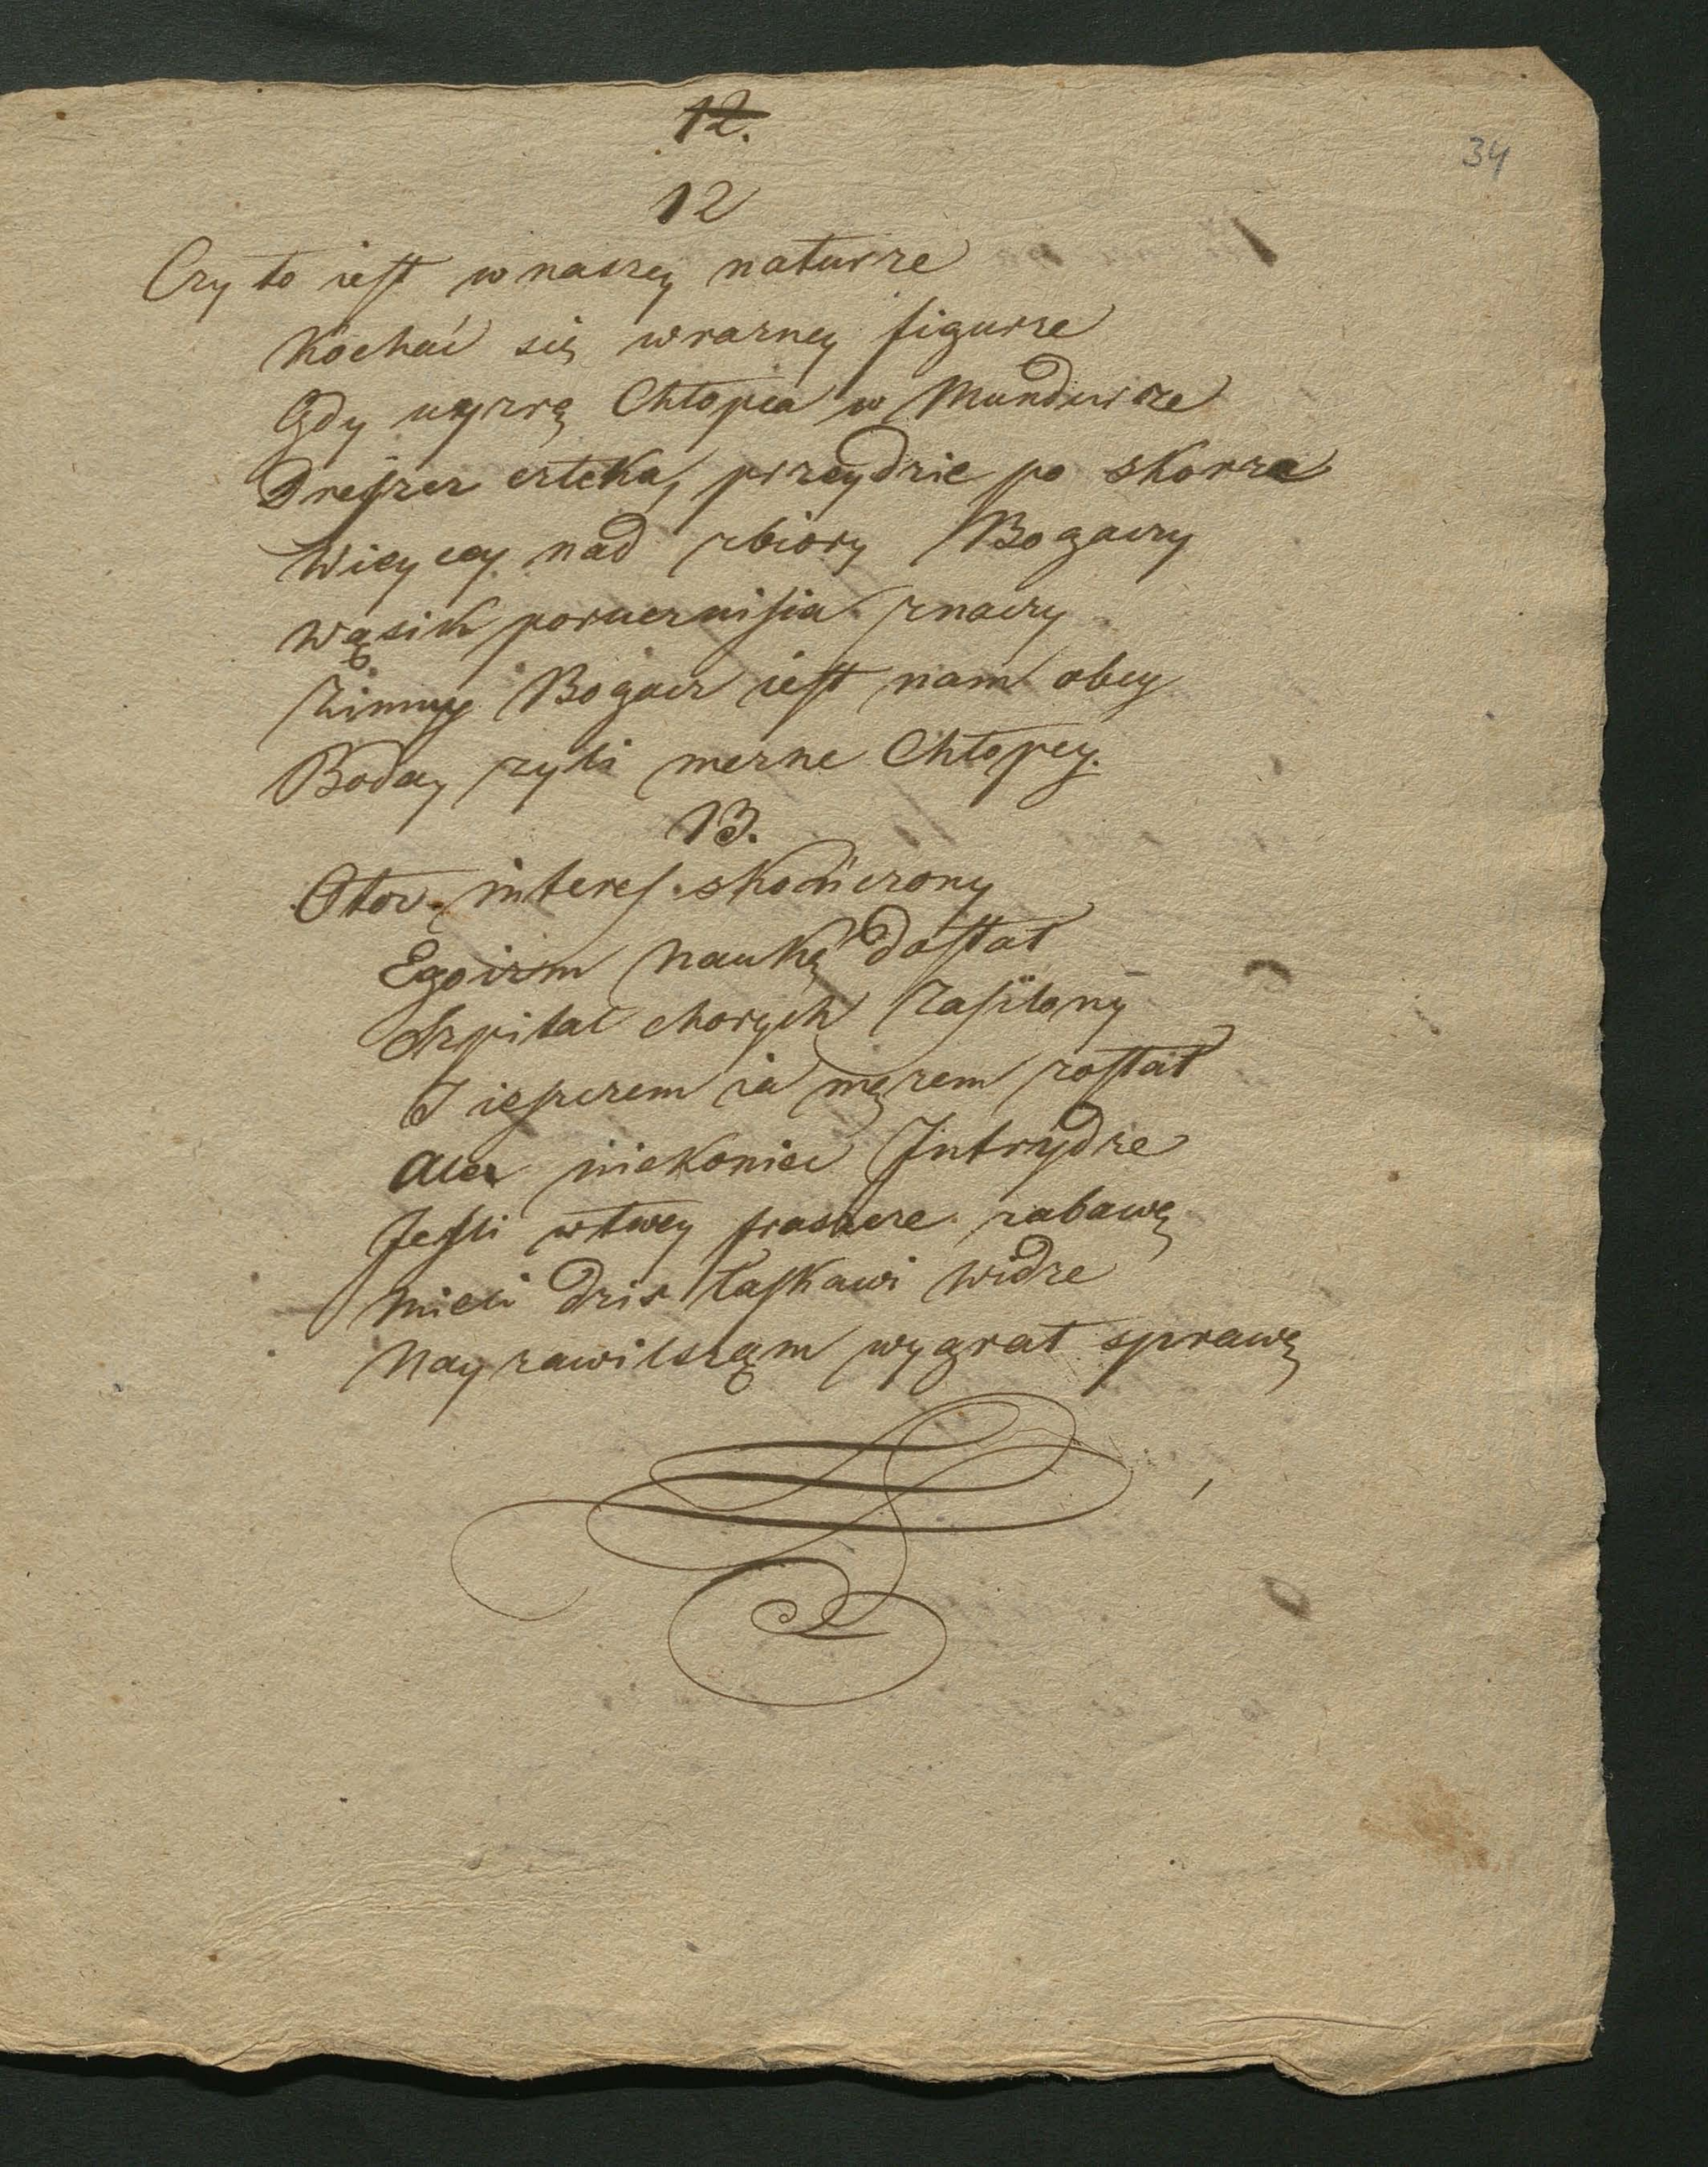 12.
34
12
Czy to iest w naszey naturze
Kochać się w razney figurze
Gdy uyzrę Chłopca w Mundurze
Dreszcz człeka, przeydzie po skorze
Wiecy nad zbiory Bogaczy
Wąsik porucznisia znaczy
Zimny Bogacz iest nam obcy
Boday zyli mezne Chłopcy.
13.
Otoz interes skończony
Egoizm naukę dostał
Szpital chorych zasilony
I ieszczem ia mężem został
Alez niekoniec Intrydze
Jesli w twey fraszce zabawę
Mieli dzis łaskawi widze
Nayzawilsząm wygrał sprawę